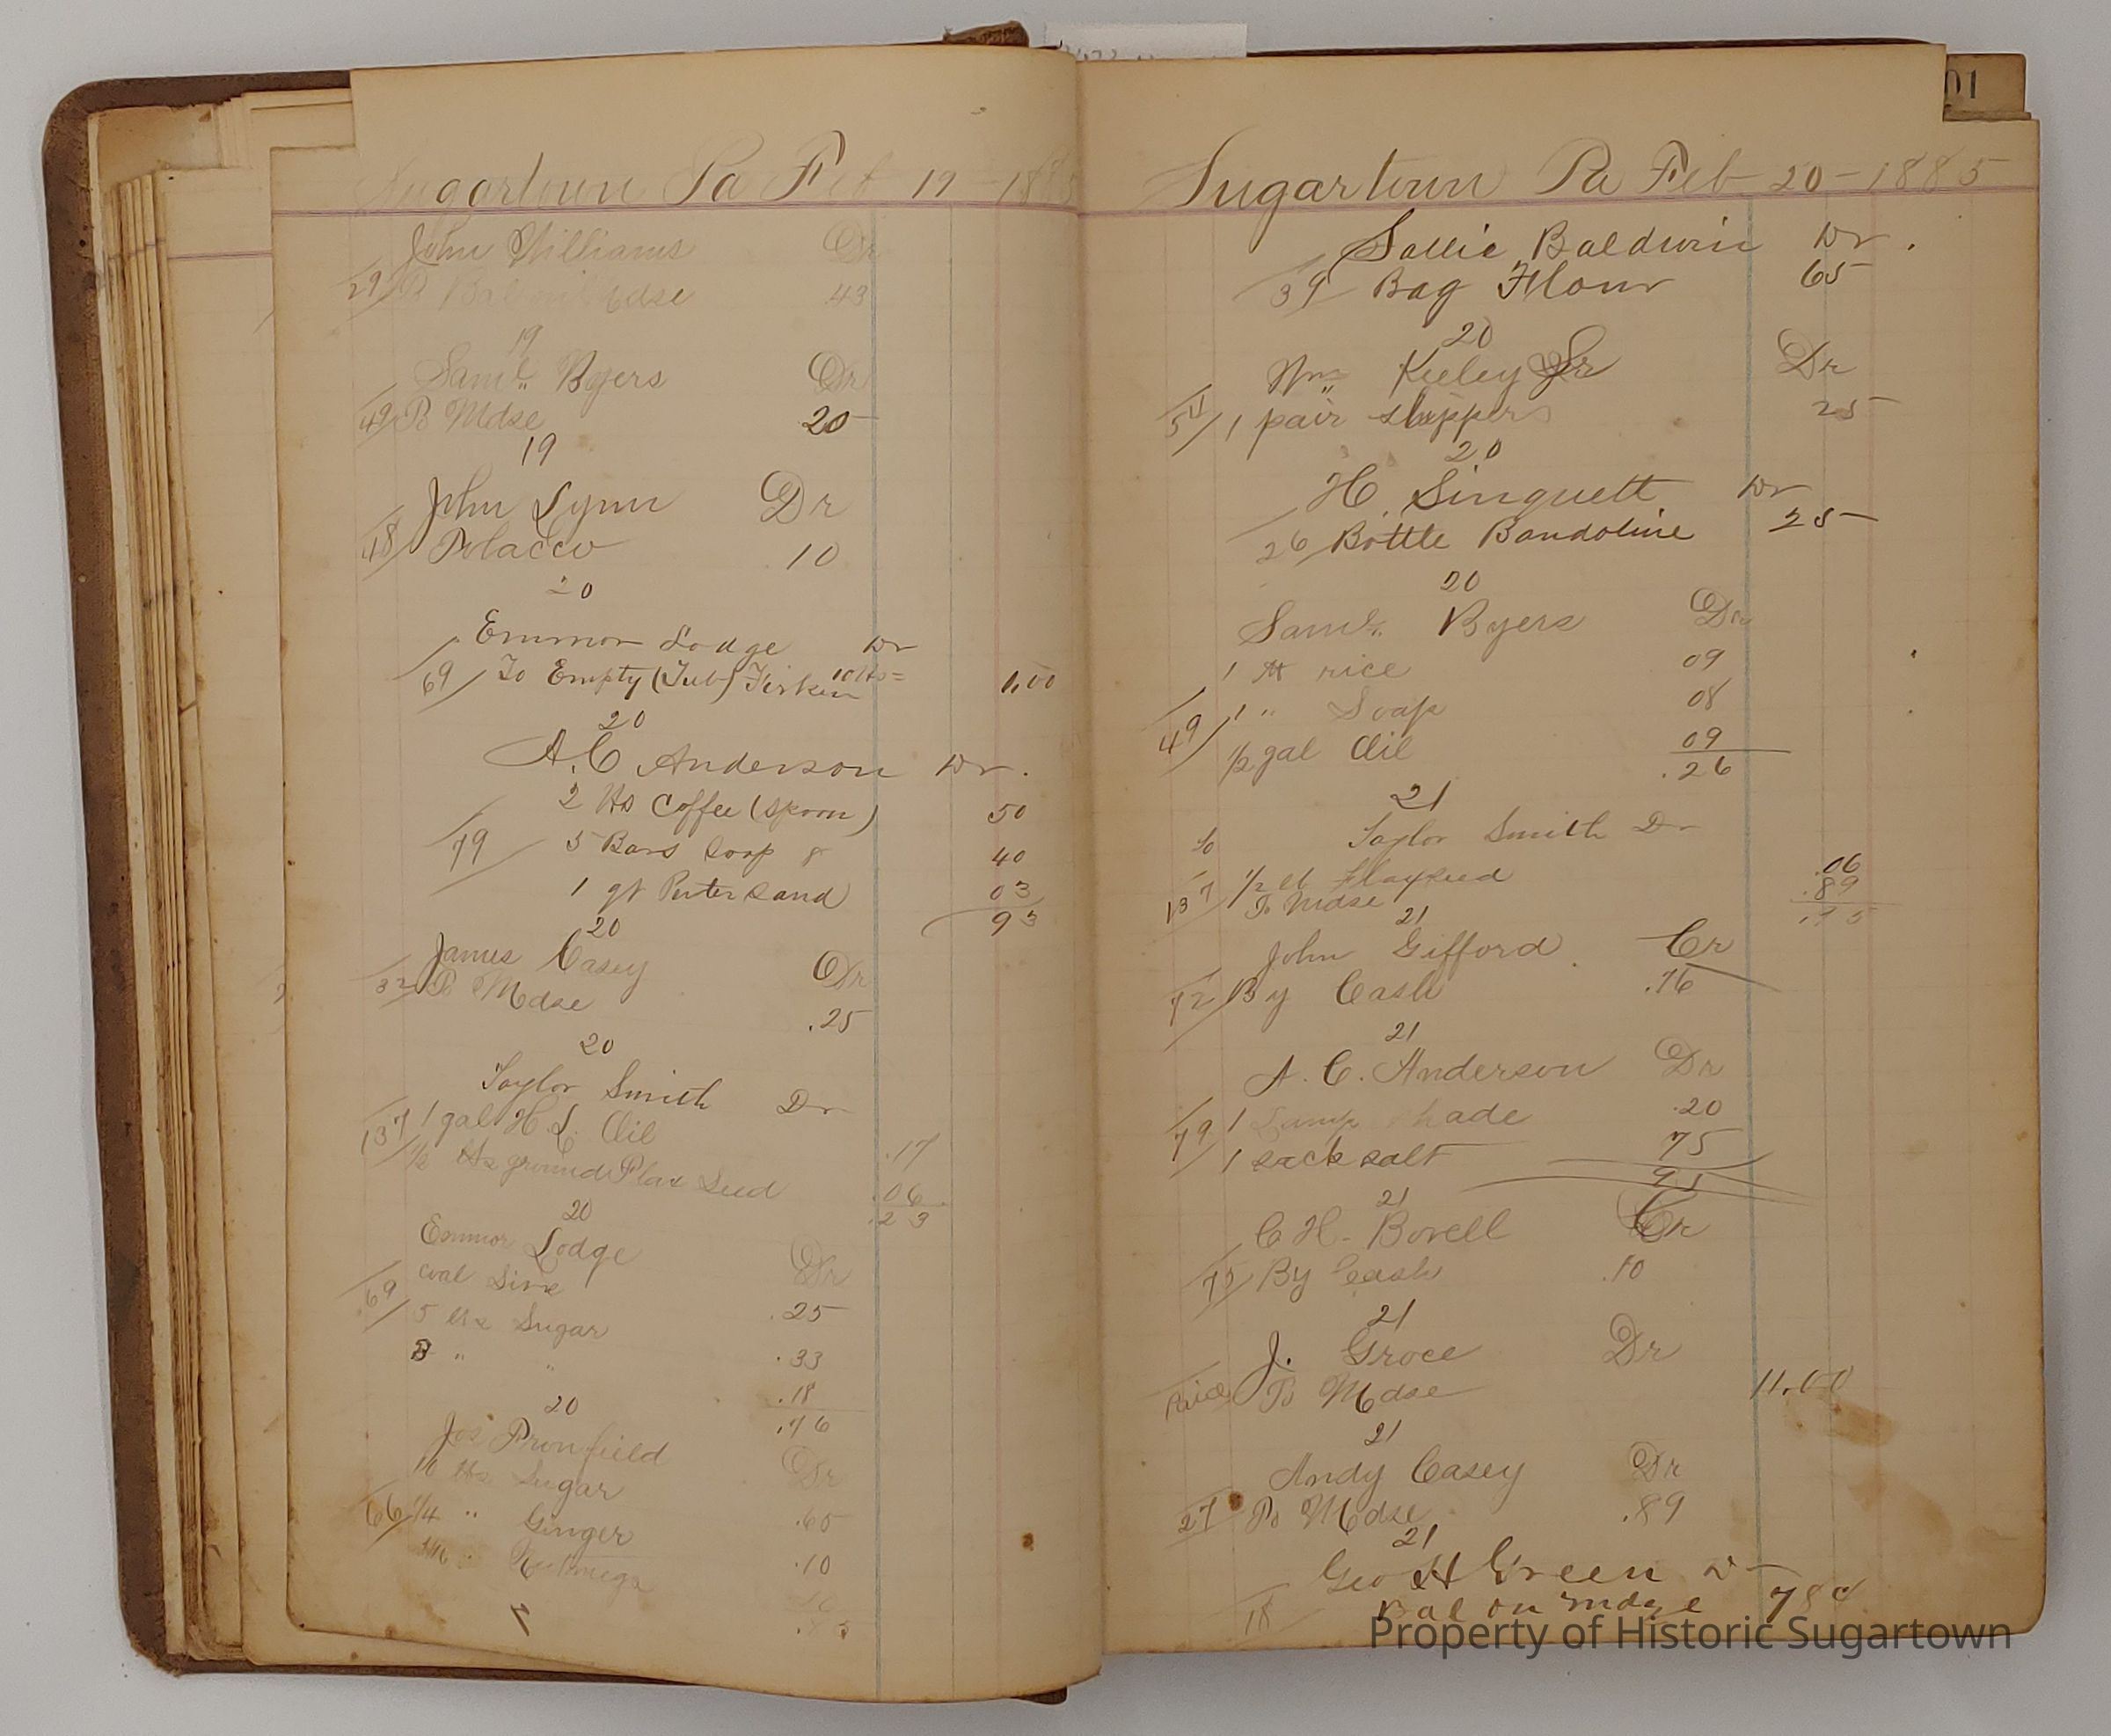 01
Sugartown Pa Feb 19 - 1885
John Williams Dr
29 Mdse 43
19
Saml. Byers Dr
49 To Mdse 20
19
John Lynn Dr
48 Tobacco 10
20
Emmor Lodge Dr
69 To Empty (Tub) Firkin 1.00
20
A. C. Anderson Dr.
2 lbs Coffee (spoon) 50
79 5 Bars Soap 8 40
1 qt Sand 03
93
20
James Casey Dr
32 To Mdse .25
20
Taylor Smith Dr
137 1 gal H L Oil .17
1/2 lbs ground Flax Seed .06
.23
20
Emmor Lodge Dr
coal Sive .25
69 5 lbs Sugar .33
3 " " .18
.76
20
Jos Dr
10 lbs Sugar .65
66 1/4 " Ginger .10
Nutmegs
Sugartown Pa Feb 20 - 1885
Sallie Baldwin Dr.
39 Bag Flour 65
20
Wm. Keeley Sr Dr
54 1 pair slippers 25
20
H. Singuett Dr
26 Bottle Bandoline 25
20
Saml. Byers Dr
1 lb rice 09
49 1 " Soap 08
1/2 gal Oil 09
.26
21
Taylor Smith Dr
137 1/2 lb Flaxseed .06
To Mdse .89
.95
21
John Gifford Cr
72 By Cash .76
21
A. C. Anderson Dr
79 1 Lamp shade .20
1 sack salt 75
95
21
C H. Bovell Cr
75 By Cash .10
21
J. Groce Dr
Paid To Mdse 11.00
21
Andy Casey Dr
27 To Mdse .89
21
Geo H Green Dr
18 Bal on mdse 78
Property of Historic Sugartown